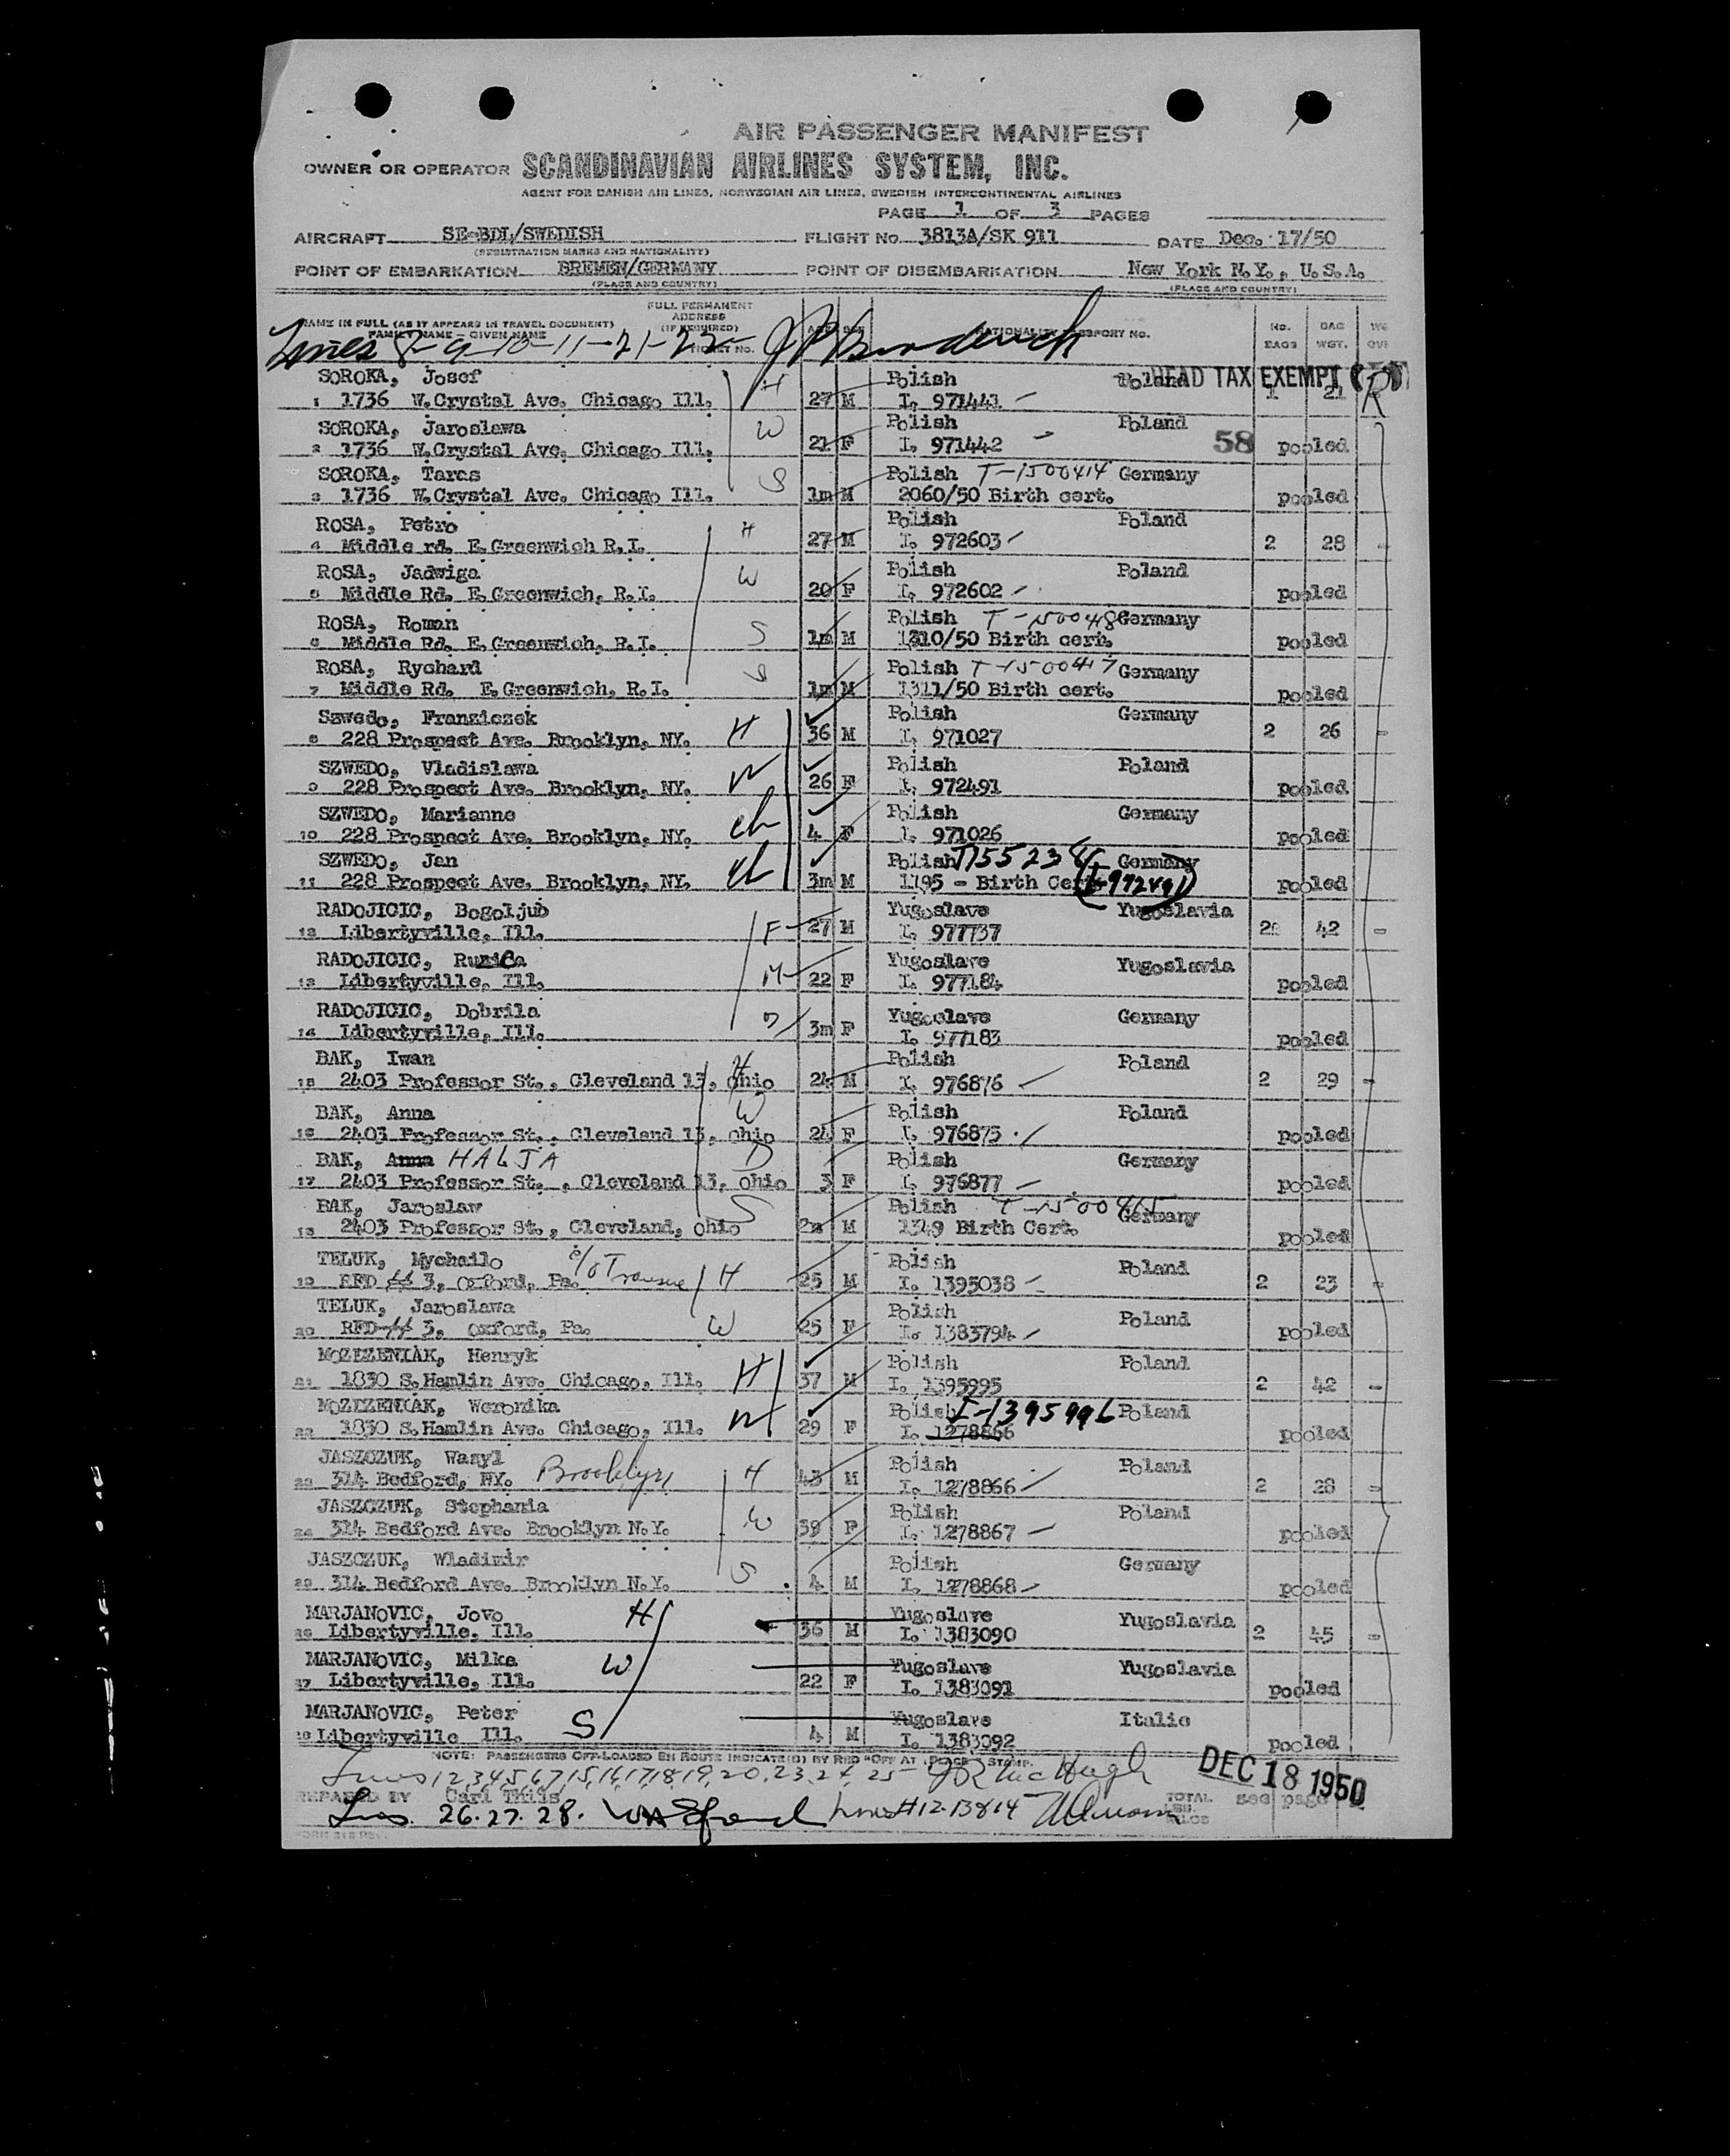 AIR PASSENGER MANIFEST
OWNER OR OPERATOR SCANDINAVIAN AIRLINES SYSTEM, INC.
AGENT FOR DANISH AIR LINES, NORWEGIAN AIR LINES, SWEDISH INTERCONTINENTAL AIRLINES
PAGE 1 OF 3 PAGES
AIRCRAFT SE-BDL/SWEDISH FLIGHT No. 3813A/SK 911 DATE Dec. 17/50
(REGISTRATION MARKS AND NATIONALITY)
POINT OF EMBARKATION BREMEN/GERMANY POINT OF DISEMBARKATION New York N.Y., U.S.A.
(PLACE AND COUNTRY) (PLACE AND COUNTRY)
FULL PERMANENT
ADDRESS
NAME IN FULL (AS IT APPEARS IN TRAVEL DOCUMENT) (IF REQUIRED) NO. BAG
FAMILY NAME - GIVEN NAME TICKET NO. AGE SEX NATIONALITY PASSPORT NO. BAGS WGT.
Lines 8-9-10-11-21-22-
HEAD TAX EXEMPT
SOROKA, Josef H Polish Poland
1 1736 W.Crystal Ave. Chicago Ill. 27 M I. 971441 1 21 R
SOROKA, Jaroslawa W Polish Poland
2 1736 W.Crystal Ave. Chicago Ill. 21 F I. 971442 58 pooled
SOROKA, Taras S Polish T-1500414 Germany
3 1736 W.Crystal Ave. Chicago Ill. 1m M 2060/50 Birth cert. pooled
ROSA, Petro H Polish Poland
4 Middle rd. E.Greenwich R.I. 27 M I. 972603 2 28 -
ROSA, Jadwiga W Polish Poland
5 Middle Rd. E.Greenwich, R.I. 20 F I. 972602 pooled
ROSA, Roman S Polish Germany
6 Middle Rd. E.Greenwich, R.I. 1m M 1310/50 Birth cert. pooled
ROSA, Rychard S Polish T-1500417 Germany
7 Middle Rd. E.Greenwich, R.I. 1m M 1311/50 Birth cert. pooled
Szwedo, Franziczek H Polish Germany
8 228 Prospect Ave. Brooklyn, NY. 36 M I. 971027 2 26 -
SZWEDO, Vladislawa W Polish Poland
9 228 Prospect Ave. Brooklyn, NY. 26 F I. 972491 pooled
SZWEDO, Marianne ch Polish Germany
10 228 Prospect Ave. Brooklyn, NY. 4 F I. 971026 pooled
SZWEDO, Jan ch Polish Germany
11 228 Prospect Ave. Brooklyn, NY. 3m M 1195 - Birth Cert. (I-972491) pooled
RADOJICIC, Bogoljub F Yugoslave Yugoslavia
12 Libertyville, Ill. 27 M I. 977737 2 42 -
RADOJICIC, Ruzica M Yugoslave Yugoslavia
13 Libertyville, Ill. 22 F I. 977184 pooled
RADOJICIC, Dobrila D Yugoslave Germany
14 Libertyville, Ill. 3m F I. 977183 pooled
BAK, Iwan H Polish Poland
15 2403 Professor St., Cleveland 13, Ohio 24 M I. 976876 2 29 -
BAK, Anna W Polish Poland
16 2403 Professor St., Cleveland 13, Ohio 24 F I. 976875 pooled
BAK, Anna HALJA D Polish Germany
17 2403 Professor St., Cleveland 13, Ohio 3 F I. 976877 pooled
BAK, Jaroslaw S Polish T-1500415 Germany
18 2403 Professor St., Cleveland, Ohio 2m M 1349 Birth Cert. pooled
TELUK, Mychailo c/o H Polish Poland
19 RFD 3, Oxford, Pa. 25 M I. 1395038 2 23 -
TELUK, Jaroslawa W Polish Poland
20 RFD 3, Oxford, Pa. 25 F I. 1383794 pooled
MOZDZENIAK, Henryk H Polish Poland
21 1830 S.Hamlin Ave. Chicago, Ill. 37 M I. 1395995 2 42 -
MOZDZENIAK, Weronika W Polish I-1395996 Poland
22 1830 S.Hamlin Ave. Chicago, Ill. 29 F I. 1278866 pooled
JASZCZUK, Wasyl Brooklyn H Polish Poland
23 314 Bedford, NY. 43 M I. 1278866 2 28 -
JASZCZUK, Stephania W Polish Poland
24 314 Bedford Ave. Brooklyn N.Y. 39 F I. 1278867 pooled
JASZCZUK, Wladimir S Polish Germany
25 314 Bedford Ave. Brooklyn N.Y. 4 M I. 1278868 pooled
MARJANOVIC, Jovo H Yugoslave Yugoslavia
26 Libertyville, Ill. 36 M I. 1383090 2 45 -
MARJANOVIC, Milka W Yugoslave Yugoslavia
27 Libertyville, Ill. 22 F I. 1383091 pooled
MARJANOVIC, Peter S Yugoslave Italie
28 Libertyville Ill. 4 M I. 1383092 pooled
NOTE: PASSENGERS OFF-LOADED EN ROUTE INDICATE(D) BY RED "OFF AT (PLACE)" STAMP.
Lines 1,2,3,4,5,6,7,15,16,17,18,19,20,23,24,25 DEC 18 1950
PREPARED BY Carl Thiis TOTAL LBS. KILOS see page
Lines 26.27.28. Lines # 12-13&14